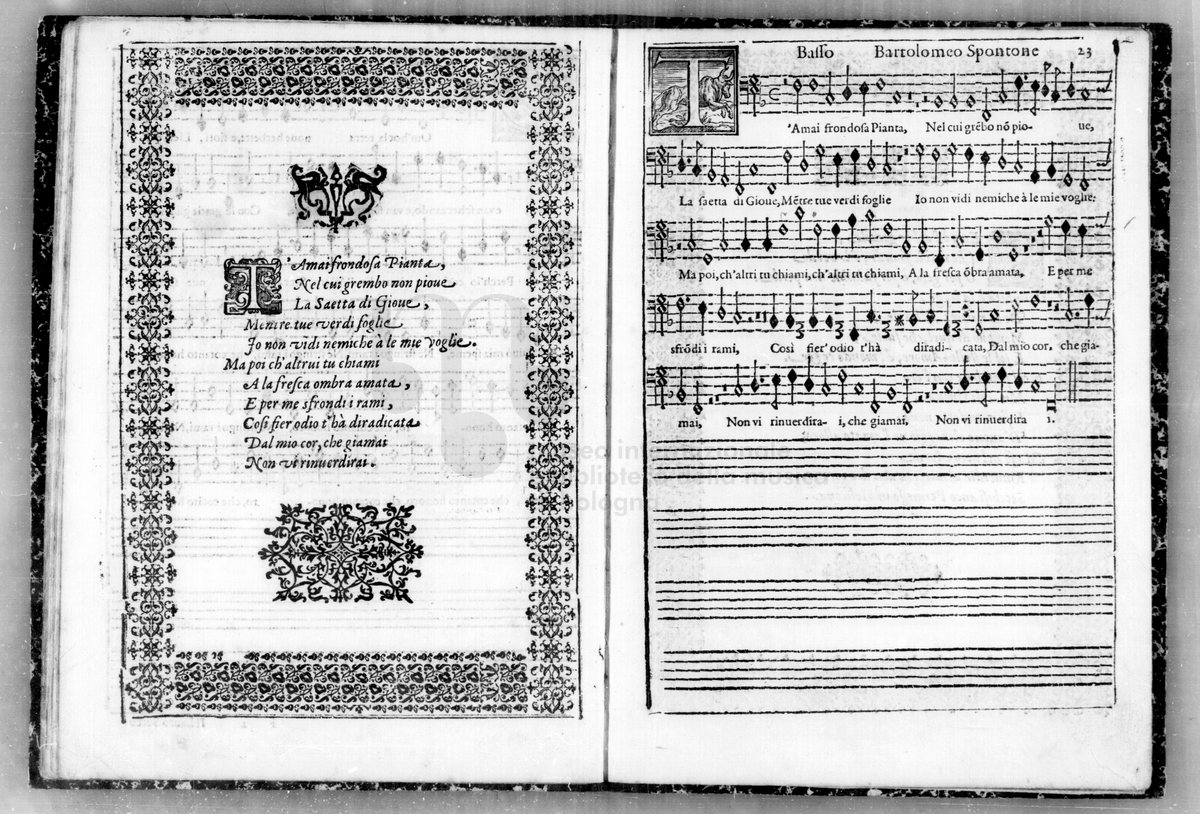 T'Amai frondosa Pianta,
Nel cui grembo non pioue
La Saetta di Gioue,
Mentre tue verdi foglie
Io non vidi nemiche à le mie voglie.
Ma poi ch'altrui tu chiami
A la fresca ombra amata,
E per me sfrondi i rami,
Cosi fier odio t'hà diradicata
Dal mio cor, che giamai
Non vi rinuerdirai.
Basso Bartolomeo Spontone 23
T'Amai frondosa Pianta, Nel cui grēbo nō pio- ue,
La saetta di Gioue, Mētre tue verdi foglie Io non vidi nemiche à le mie voglie:
Ma poi, ch'altri tu chiami, ch'altri tu chiami, A la fresca ōbra amata, E per me
sfrōdi i rami, Così fier' odio t'hà diradi- cata, Dal mio cor, che gia-
mai, Non vi rinuerdira- i, che giamai, Non vi rinuerdira i.
museo internazionale
biblioteca della musica
bologna